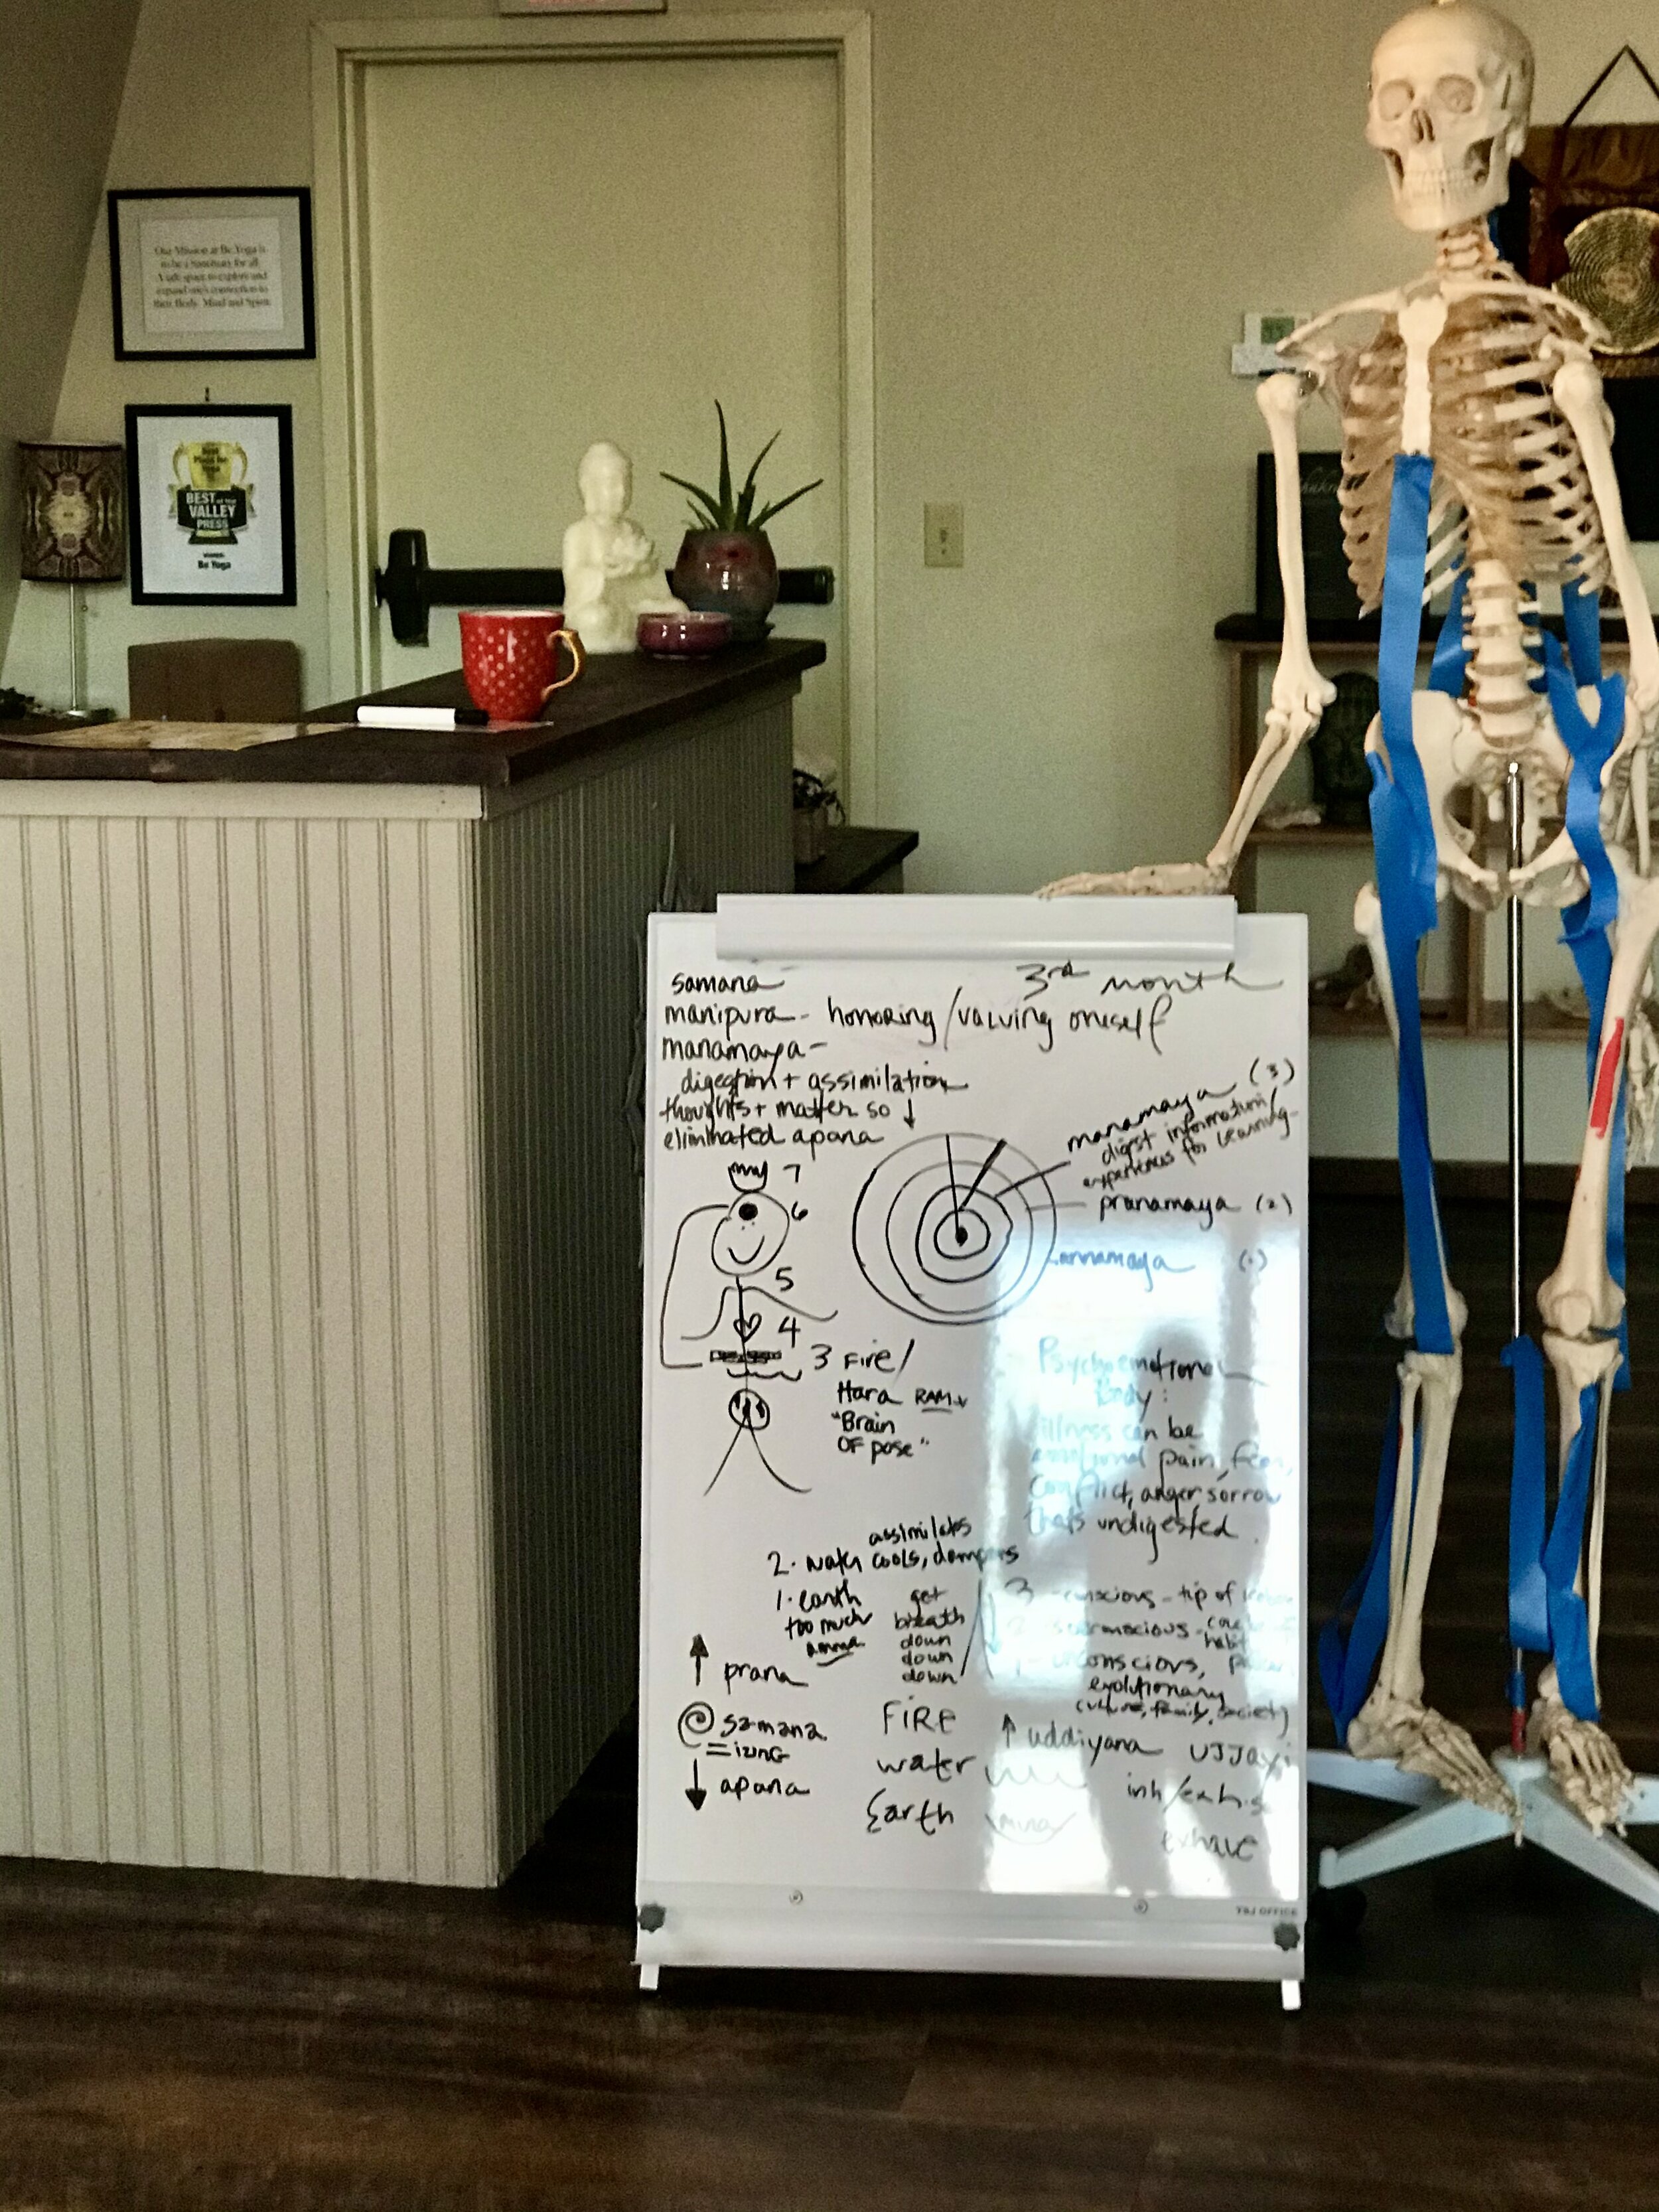 Our Mission at Be Yoga is
to be a Sanctuary for all.
A safe space to explore and
expand one's connection to
their Body, Mind and Spirit.
BEST of the
VALLEY
PRESS
Be Yoga
samana
3rd month
manipura - honoring/valuing oneself
manamaya -
digestion + assimilation
thoughts + matter so ↓
eliminated apana
manamaya (3)
digest information/
experiences for learning
pranamaya (2)
annamaya
7
6
5
4
3 Fire/
Hara RAM
"Brain
OF pose"
Psychoemotional
Body:
illness can be
emotional pain, fear,
conflict, anger sorrow
thats undigested
assimilates
2. water cools, dampens
1. earth
too much
amma
get
breath
down
down
down
3 - conscious - tip of
2 subconscious -
habit
1 - unconscious,
evolutionary
(culture, family, society)
↑ prana
samana
= izing
↓ apana
FIRE
water
Earth
↑ uddiyana
UJJayi
inh/exh
exhale
T&J OFFICE